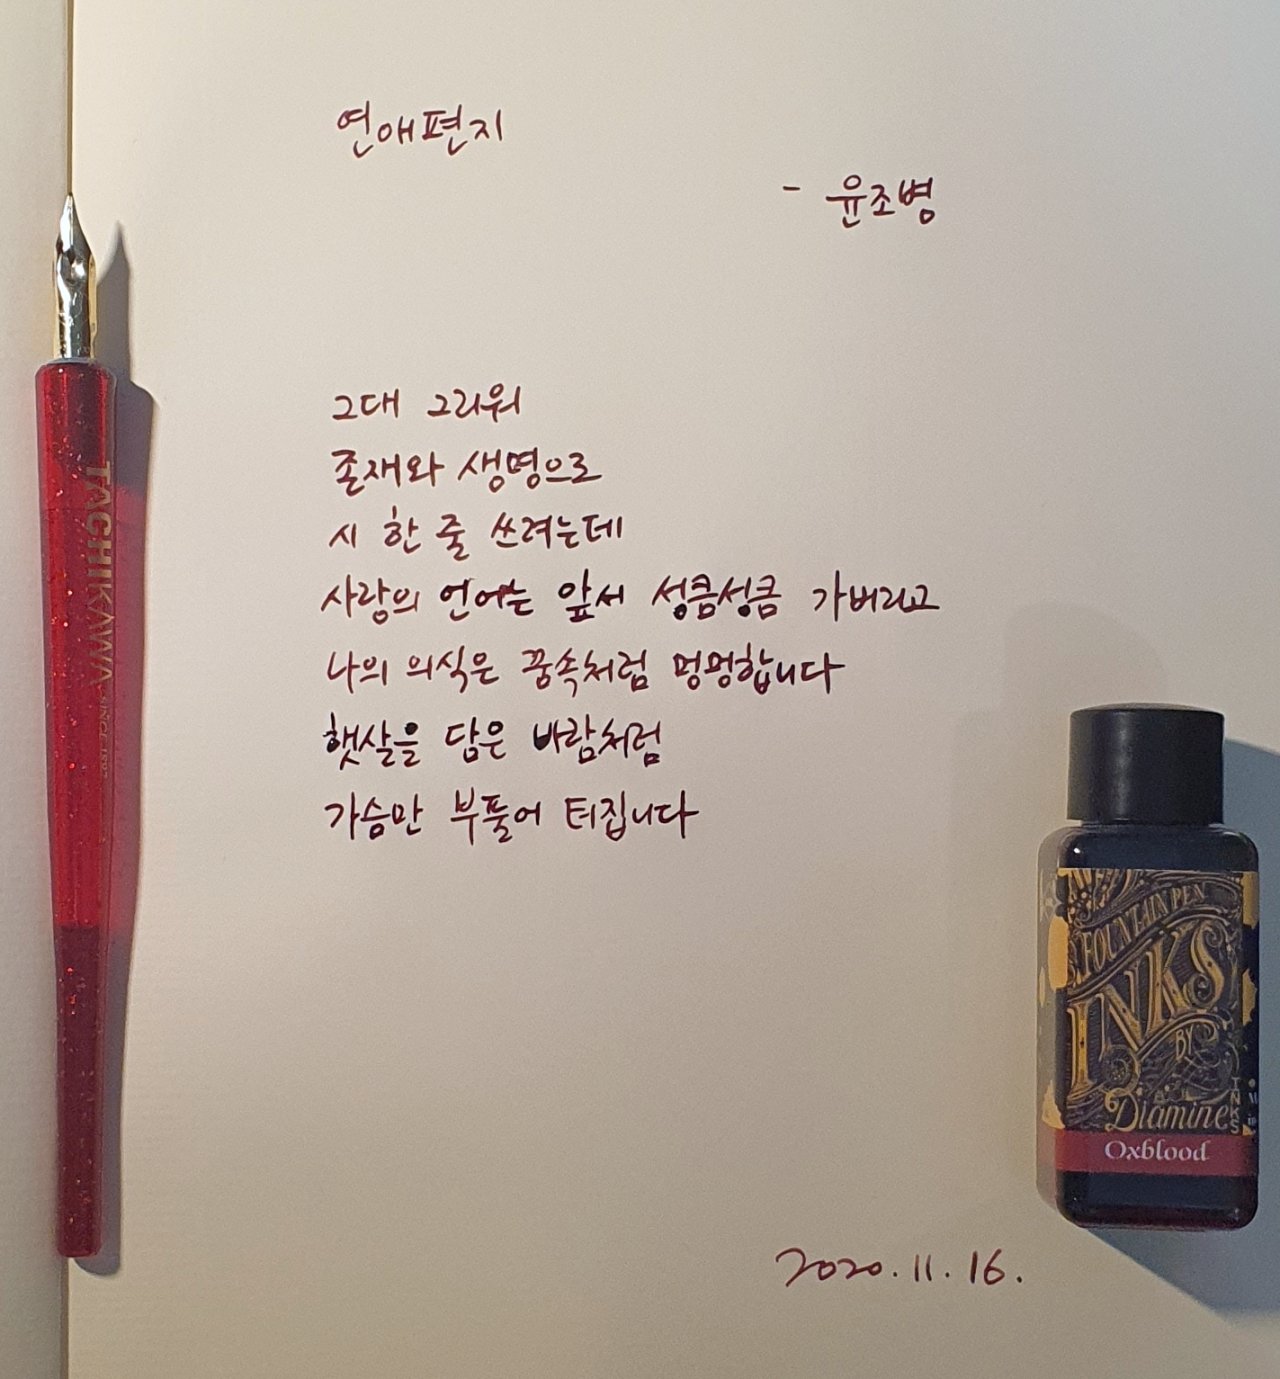 연애편지
- 윤조병
그대 그리워
존재와 생명으로
시 한 줄 쓰려는데
사랑의 언어는 앞서 성큼성큼 가버리고
나의 의식은 꿍속처럼 멍멍합니다
햇살을 담은 바람처럼
가슴만 부풀어 터집니다
2020.11.16.
TACHIKAWA
FOUNTAIN PEN
INKS
BY
Diamine
Oxblood